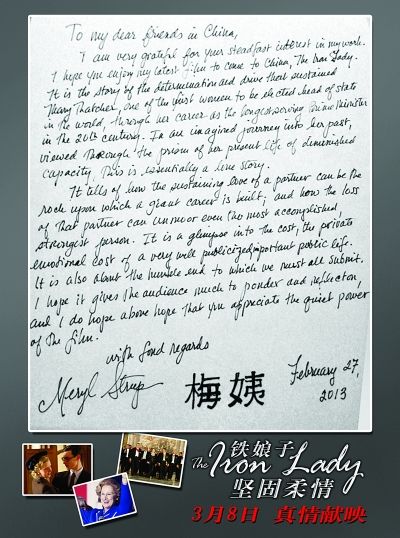 To my dear friends in China,
I am very grateful for your steadfast interest in my work.
I hope you enjoy my latest film to come to China, The Iron Lady.
It is the story of the determination and drive that sustained
Margaret Thatcher, one of the first women to be elected head of state
in the world, through her career as the longest serving Prime Minister
in the 20th century. In an imagined journey into her past,
viewed through the prism of her present life of diminished
capacity. This is essentially a love story.
It tells of how the sustaining love of a partner can be the
rock upon which a giant career is built, and how the loss
of that partner can unmoor even the most accomplished,
strongest person. It is a glimpse into the cost, the private
emotional cost of a very well publicized, important public life.
It is also about the humble end to which we must all submit.
I hope it gives the audience much to ponder and reflect on,
and I do hope above hope that you appreciate the quiet power
of the film.
with fond regards
Meryl Streep
梅姨
February 27,
2013
铁娘子
The Iron Lady
坚固柔情
3月8日 真情献映